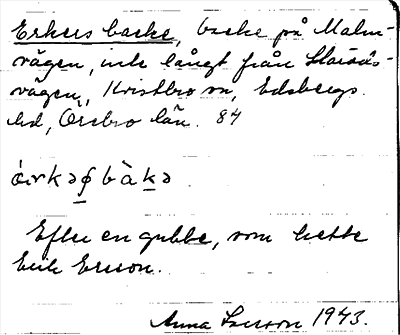 Erkers backe, backe på Malm-
vägen, inte långt från
vägen, Kvistbro sn, Edsbergs
hd, Örebro län. 84
Efter en gubbe, som hette
Erik Ersson.
Anna Larsson 1943.